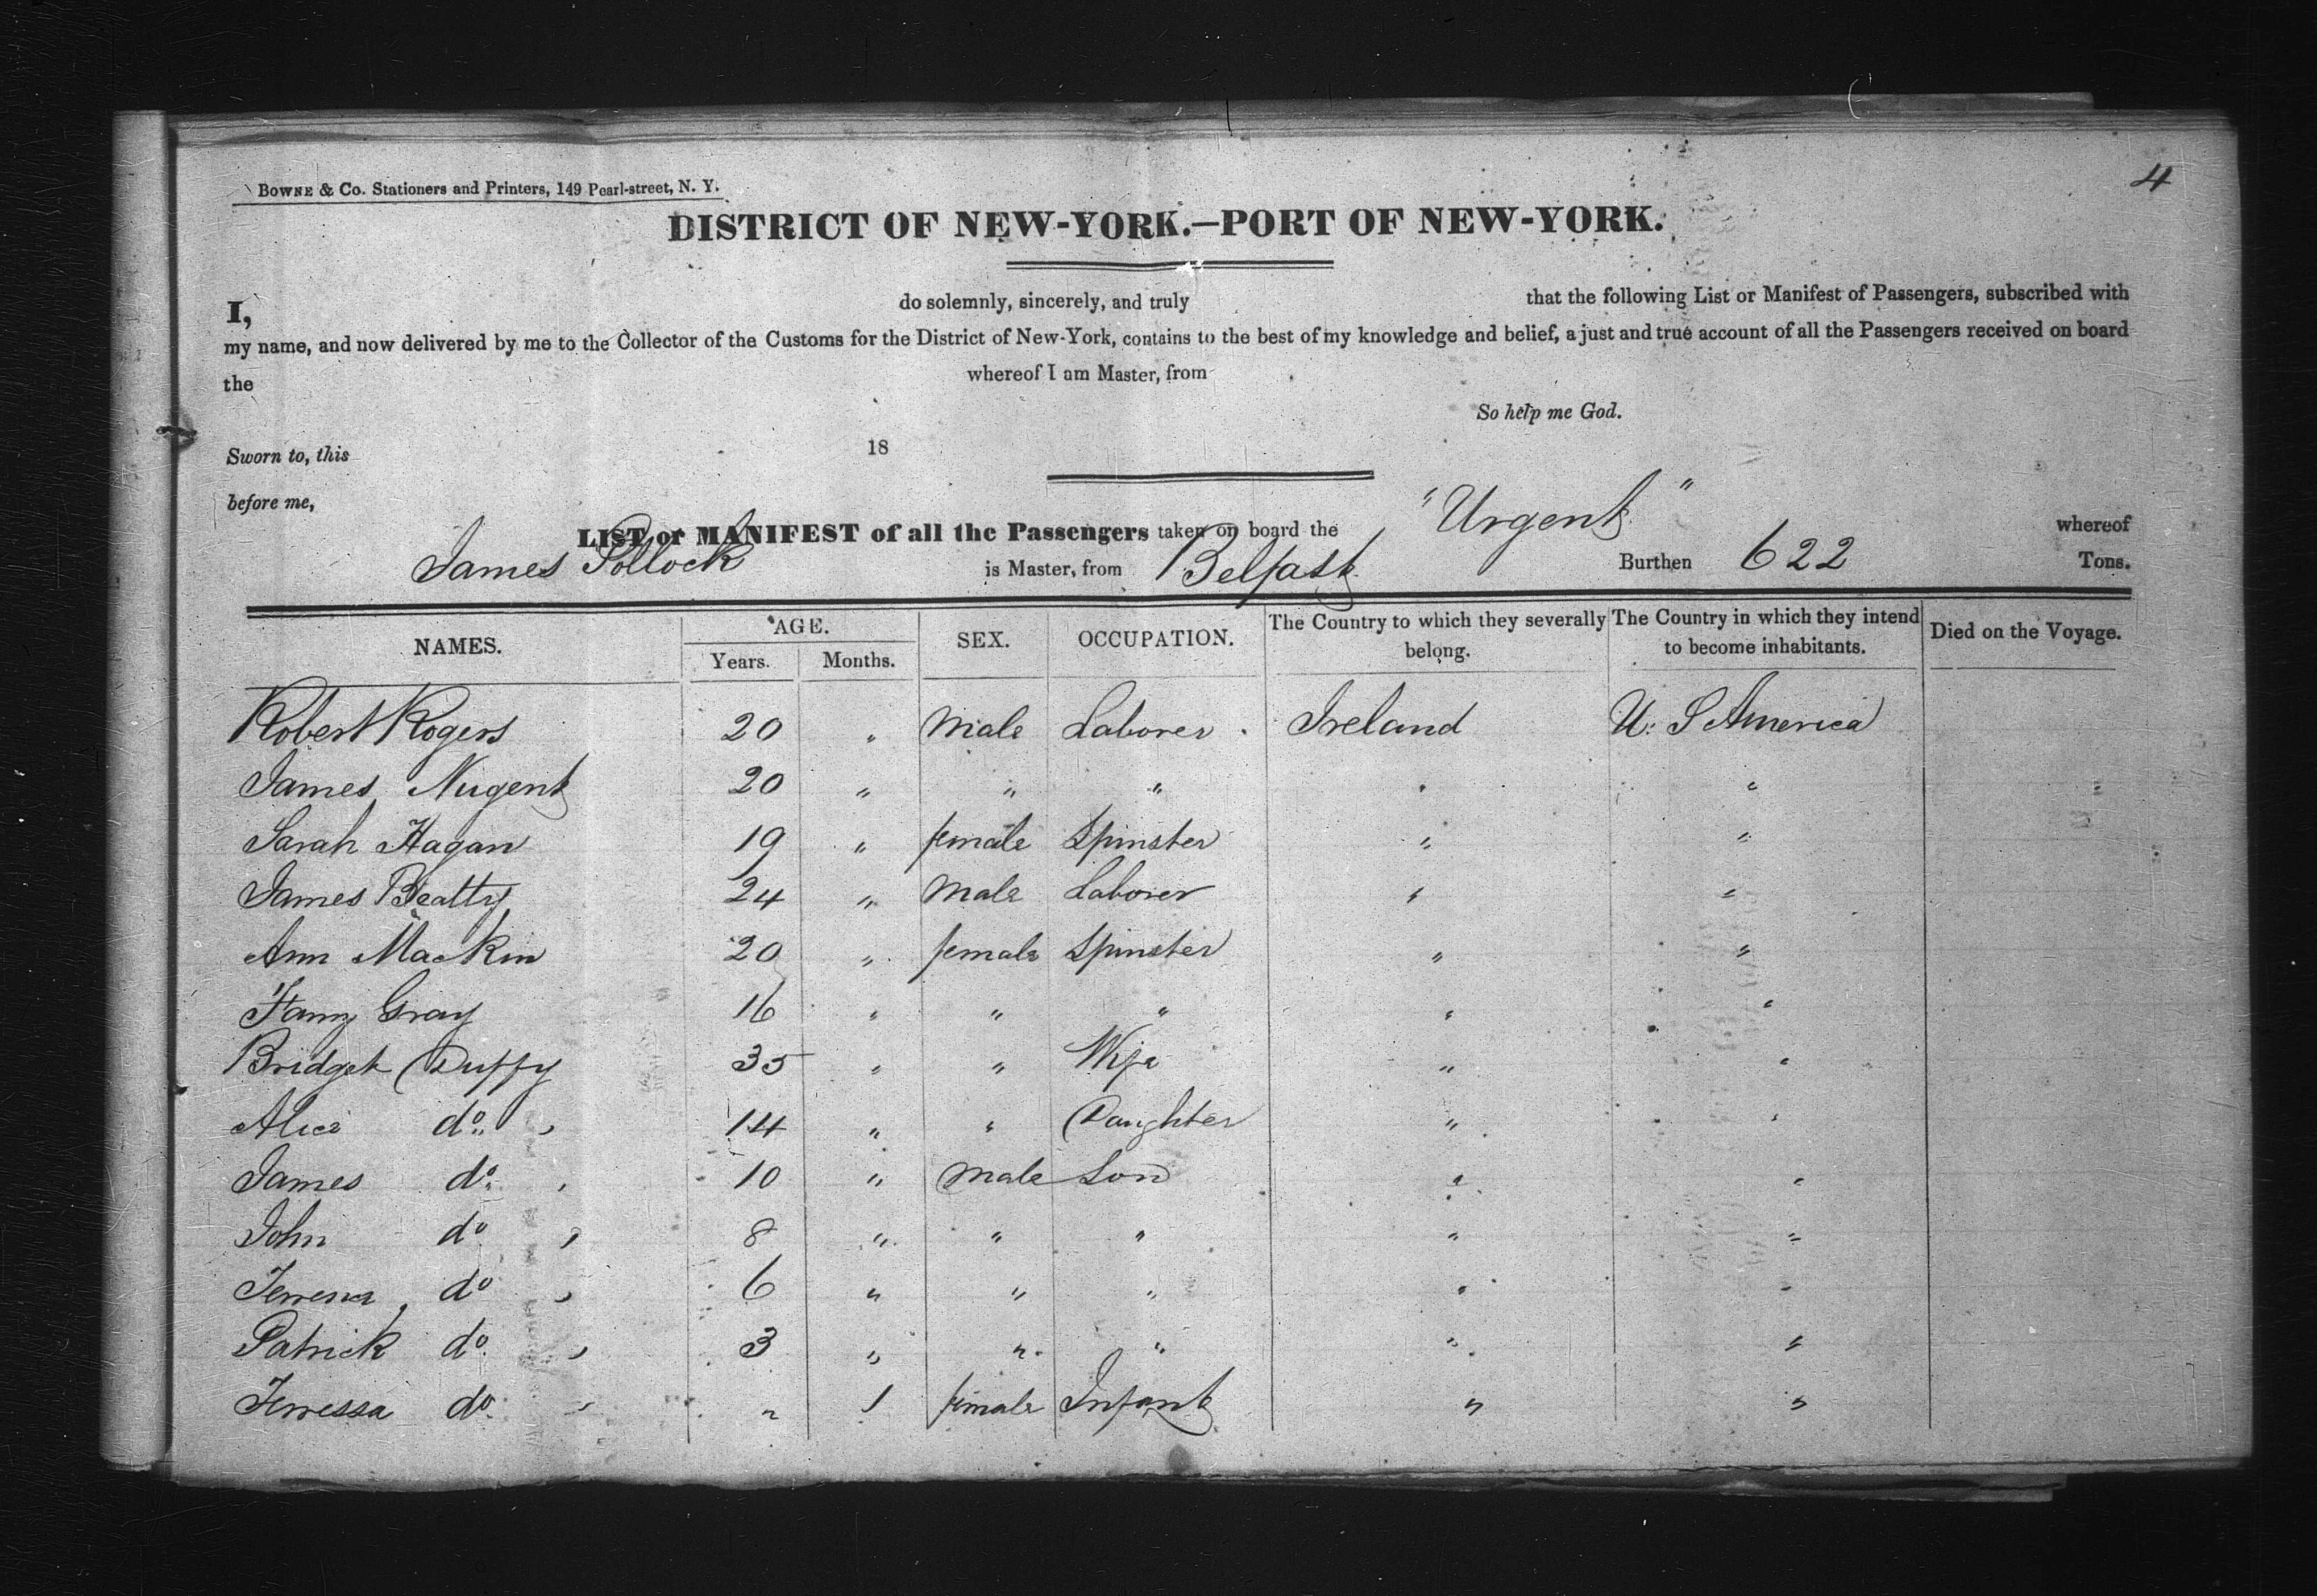 4
BOWNE & CO. Stationers and Printers, 149 Pearl-street, N. Y.
DISTRICT OF NEW-YORK.—PORT OF NEW-YORK.
I, do solemnly, sincerely, and truly that the following List or Manifest of Passengers, subscribed with
my name, and now delivered by me to the Collector of the Customs for the District of New-York, contains to the best of my knowledge and belief, a just and true account of all the Passengers received on board
the whereof I am Master, from
So help me God.
Sworn to, this 18
before me,
LIST or MANIFEST of all the Passengers taken on board the "Urgent" whereof
James Pollock is Master, from Belfast Burthen 622 Tons.
NAMES. AGE. Years. Months. SEX. OCCUPATION. The Country to which they severally belong. The Country in which they intend to become inhabitants. Died on the Voyage.
Robert Rogers 20 " Male Laborer Ireland U. S America
James Nugent 20 " " " " "
Sarah Hagan 19 " female Spinster " "
James Beatty 24 " Male Laborer " "
Ann Mackin 20 " female Spinster " "
Fanny Gray 16 " " " " "
Bridget Duffy 35 " " Wife " "
Alice do 14 " " Daughter " "
James do 10 " Male Son " "
John do 8 " " " " "
do 6 " " " " "
Patrick do 3 " " " " "
Terressa do " 1 female Infant " "